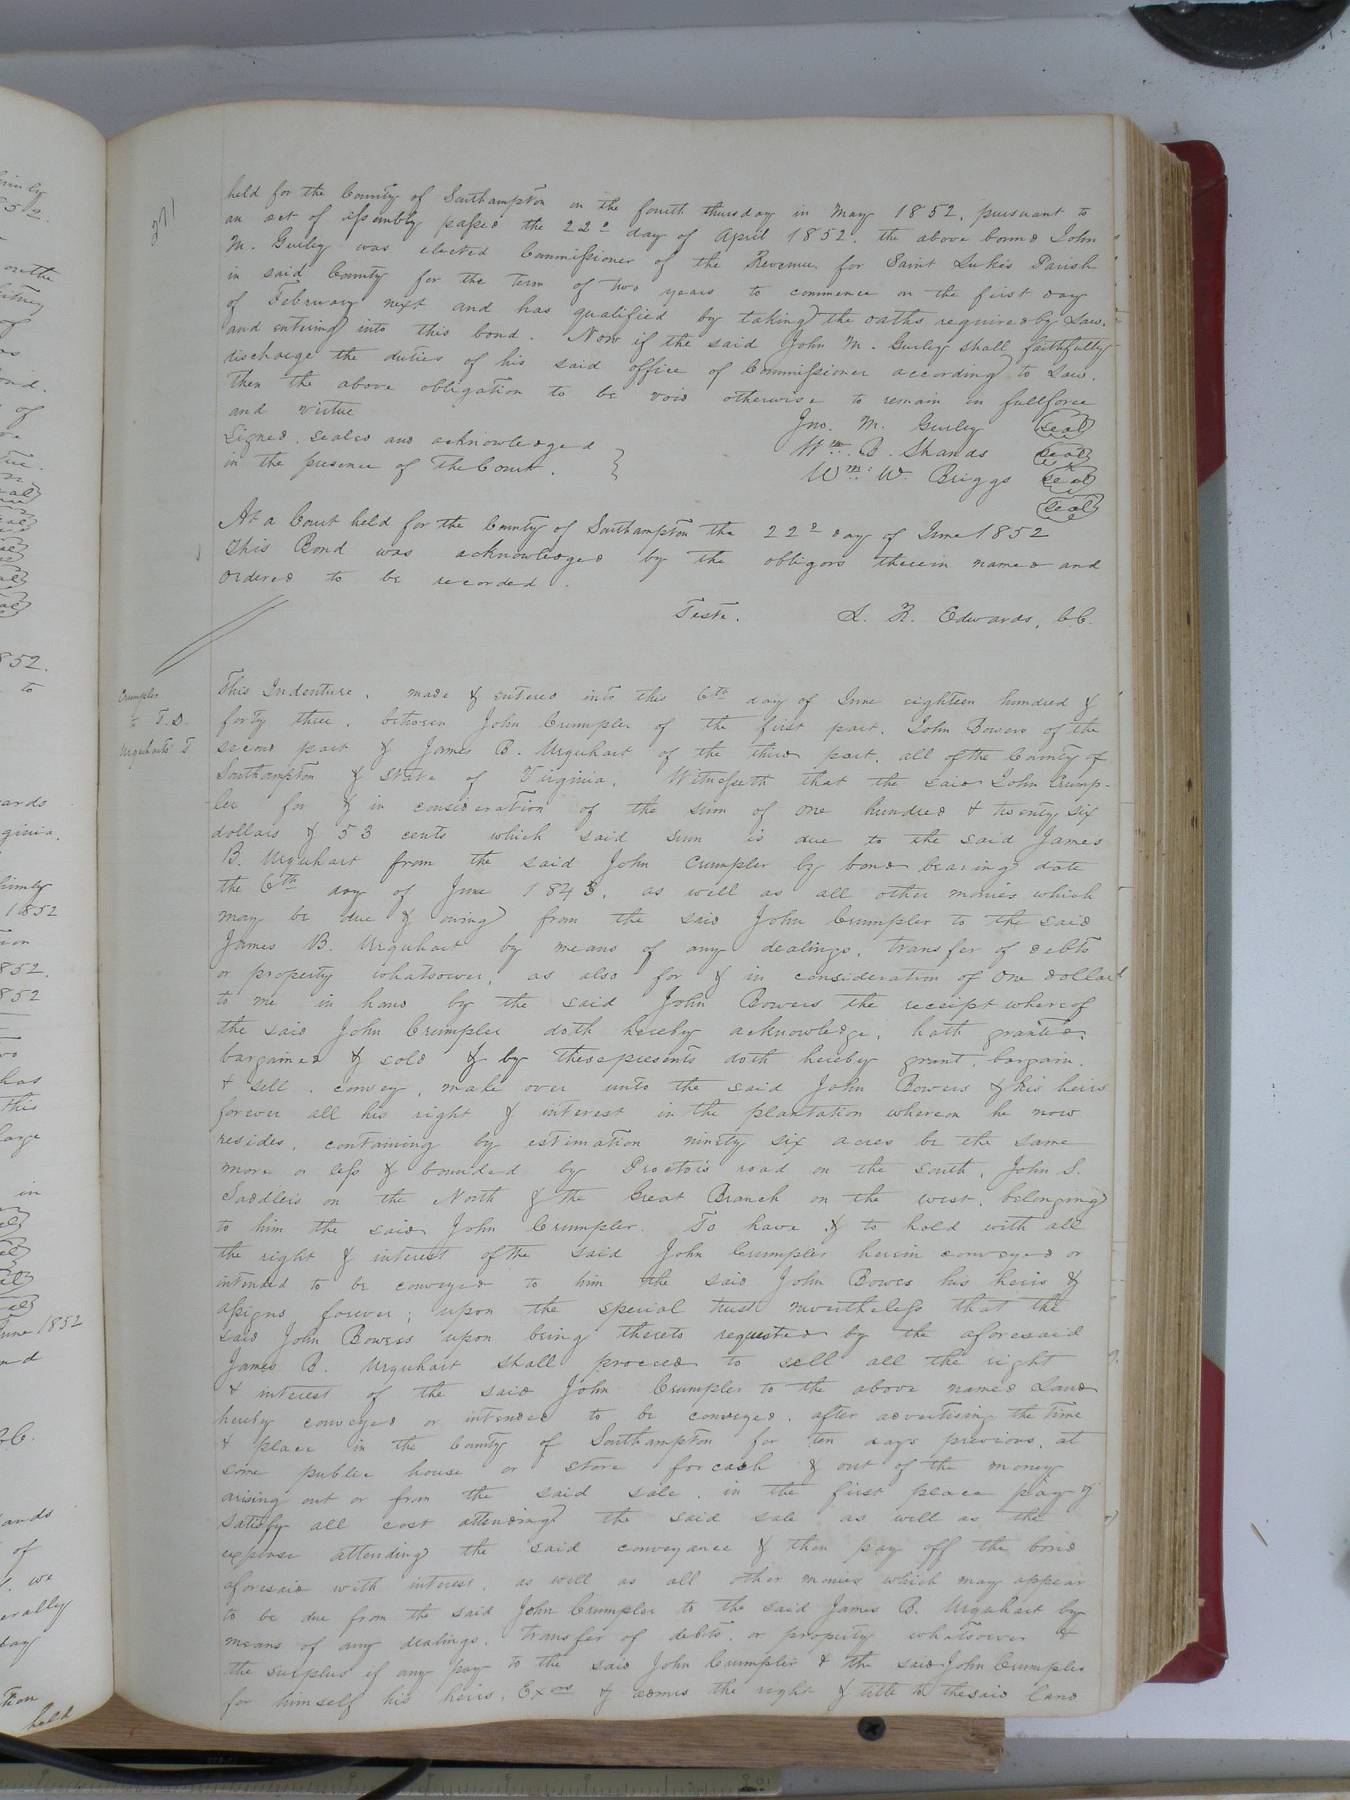 271
held for the County of Southampton on the fourth thursday in May 1852, pursuant to
an act of assembly passed the 22d day of April 1852. the above bound John
M. Gurley was elected Commissioner of the Revenue for Saint Lukes Parish
in said County for the term of two years to commence on the first day
of February next and has qualified by taking the oaths required by Law.
and entering into this bond. Now if the said John M. Gurley shall faithfully
discharge the duties of his said office of Commissioner according to Law.
then the above obligation to be void otherwise to remain in full force
and virtue
Jno. M. Gurley seal
Signed, sealed and acknowledged
Wm. B. Shands seal
in the presence of The Court.
Wm. W. Briggs seal
seal
At a Court held for the County of Southampton the 22d day of June 1852
This Bond was acknowledged by the obligors therein named and
ordered to be recorded.
Teste. L. R. Edwards, C.C.
Crumpler
to T.D.
Urquharts T
This Indenture, made & entered into this 6th day of June eighteen hundred &
forty three, between John Crumpler of the first part, John Bowers of the
second part & James B. Urquhart of the third part, all of the County of
Southampton & State of Virginia, Witnesseth that the said John Crump-
ler for & in consideration of the sum of one hundred & twenty six
dollars & 53 cents which said sum is due to the said James
B. Urquhart from the said John Crumpler by bond bearing date
the 6th day of June 1843, as well as all other monies which
may be due & owing from the said John Crumpler to the said
James B. Urquhart by means of any dealings, transfer of debts
or property whatsoever, as also for & in consideration of One dollar
to me in hand by the said John Bowers the receipt whereof
the said John Crumpler doth hereby acknowledge, hath granted,
bargained & sold & by these presents doth hereby grant, bargain,
& sell, convey, make over unto the said John Bowers & his heirs
forever all his right & interest in the plantation whereon he now
resides, containing by estimation ninety six acres be the same
more or less & bounded by Proctor's road on the south, John S.
Saddlers on the North & the Great Branch on the west, belonging
to him the said John Crumpler. To have & to hold with all
the right & interest of the said John Crumpler herein conveyed or
intended to be conveyed to him the said John Bowers his heirs &
assigns forever; upon the special trust nevertheless that the
said John Bowers upon being thereto requested by the aforesaid
James B. Urquhart shall proceed to sell all the right
& interest of the said John Crumpler to the above named Land
hereby conveyed or intended to be conveyed, after advertising the time
& place in the County of Southampton for ten days previous, at
some public house or store for cash & out of the money
arising out or from the said sale, in the first place pay &
satisfy all cost attending the said sale as well as the
expense attending the said conveyance & then pay off the bond
aforesaid with interest, as well as all other monies which may appear
to be due from the said John Crumpler to the said James B. Urquhart by
means of any dealings, transfer of debts, or property whatsoever &
the surplus if any pay to the said John Crumpler & the said John Crumpler
for himself his heirs, Exors & admrs the right & title to the said land